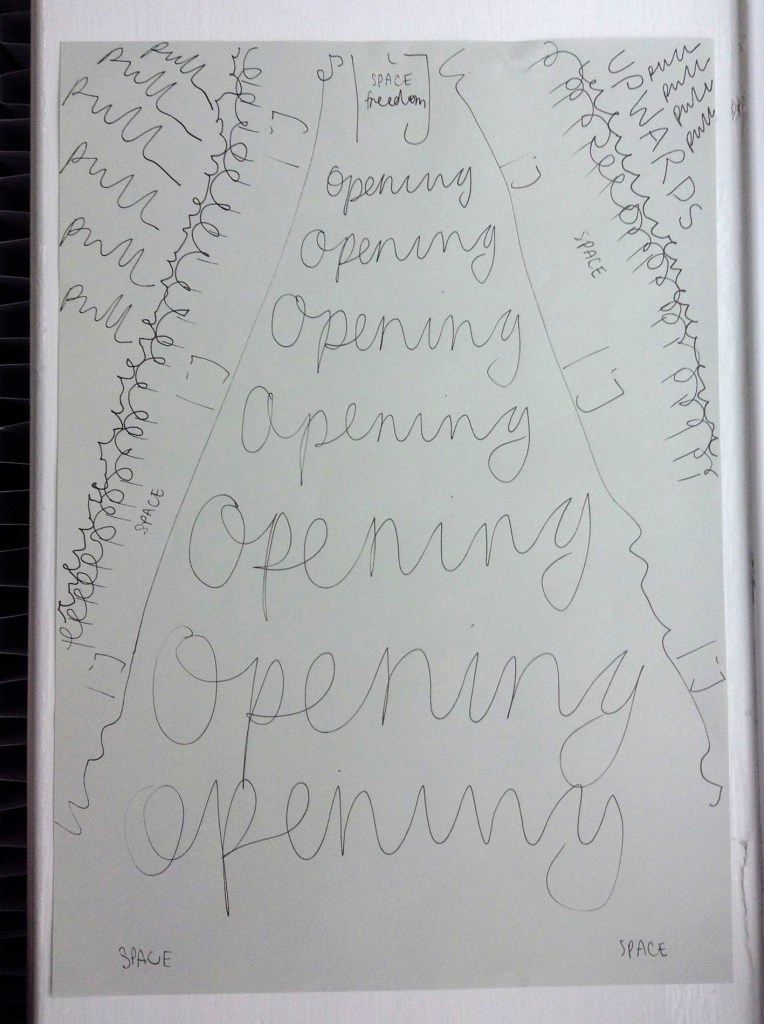 pull
pull
pull
pull
pull
pull
SPACE
freedom
UPWARDS
pull
pull
pull
pull
opening
opening
SPACE
Opening
Opening
SPACE
Opening
Opening
opening
SPACE
SPACE